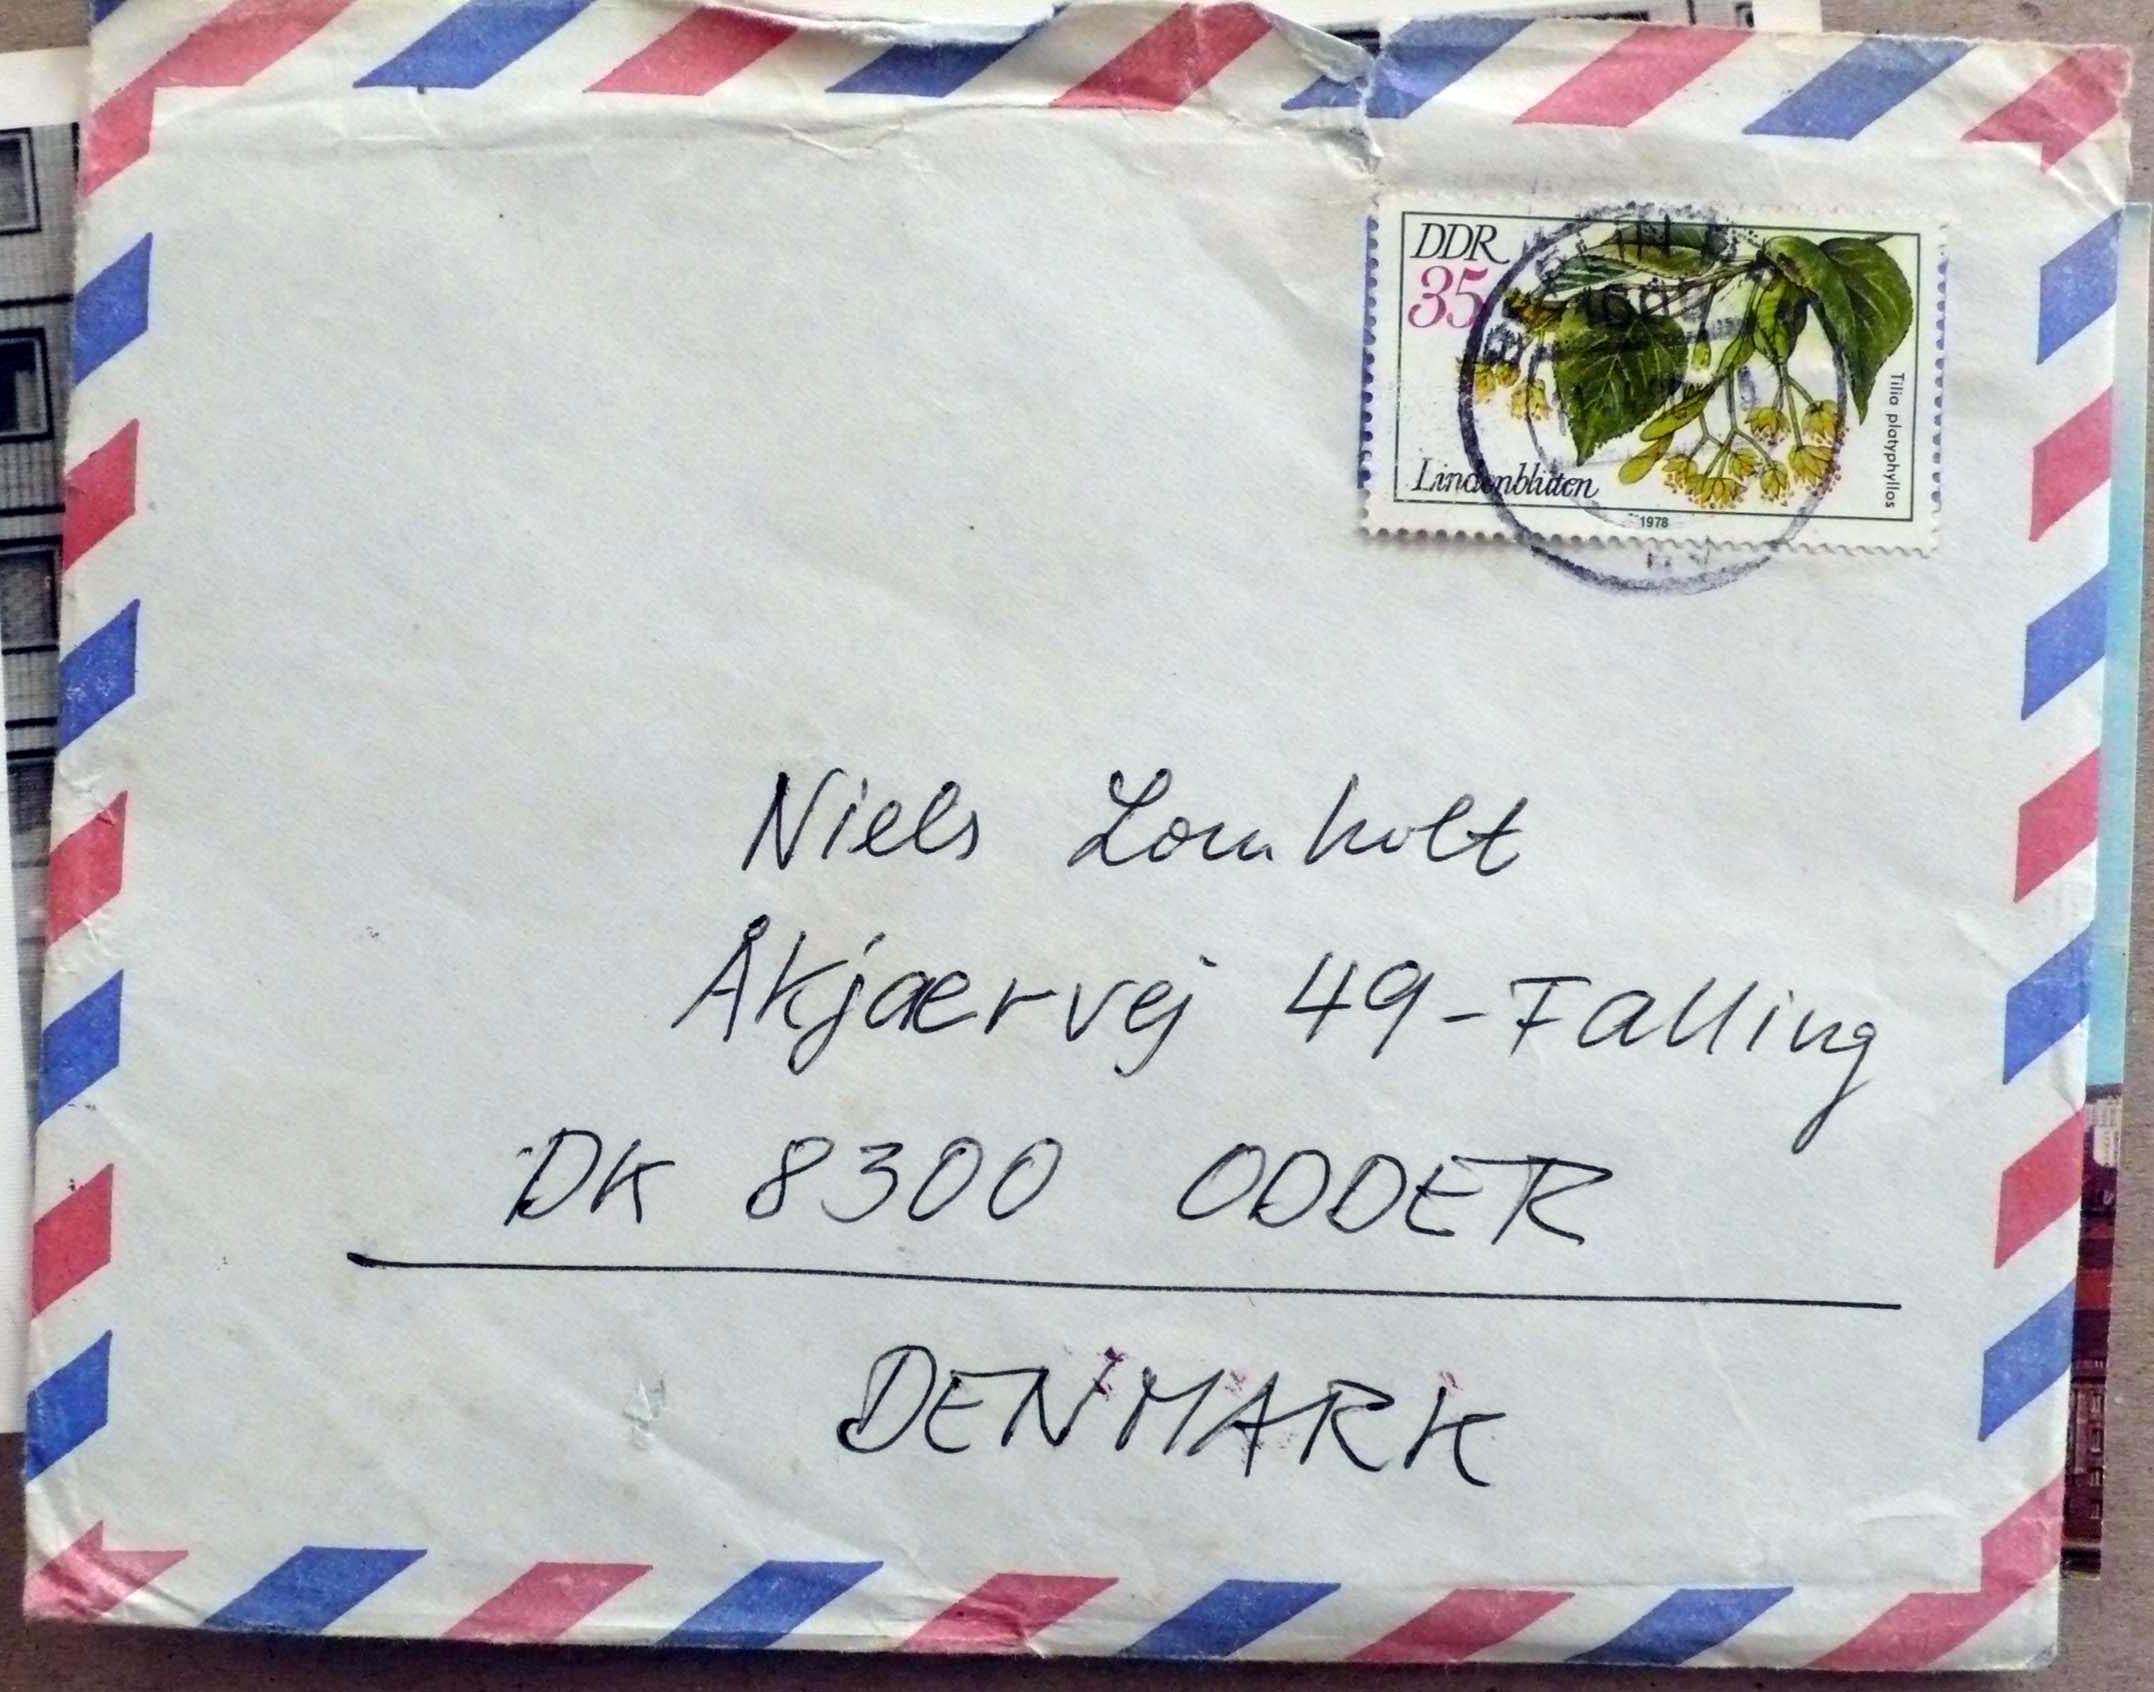 DDR
35
Tilia platyphyllos
Lindenblüten
1978
Niels Lomholt
Åkjaervej 49-Falling
DK 8300 ODDER
DENMARK